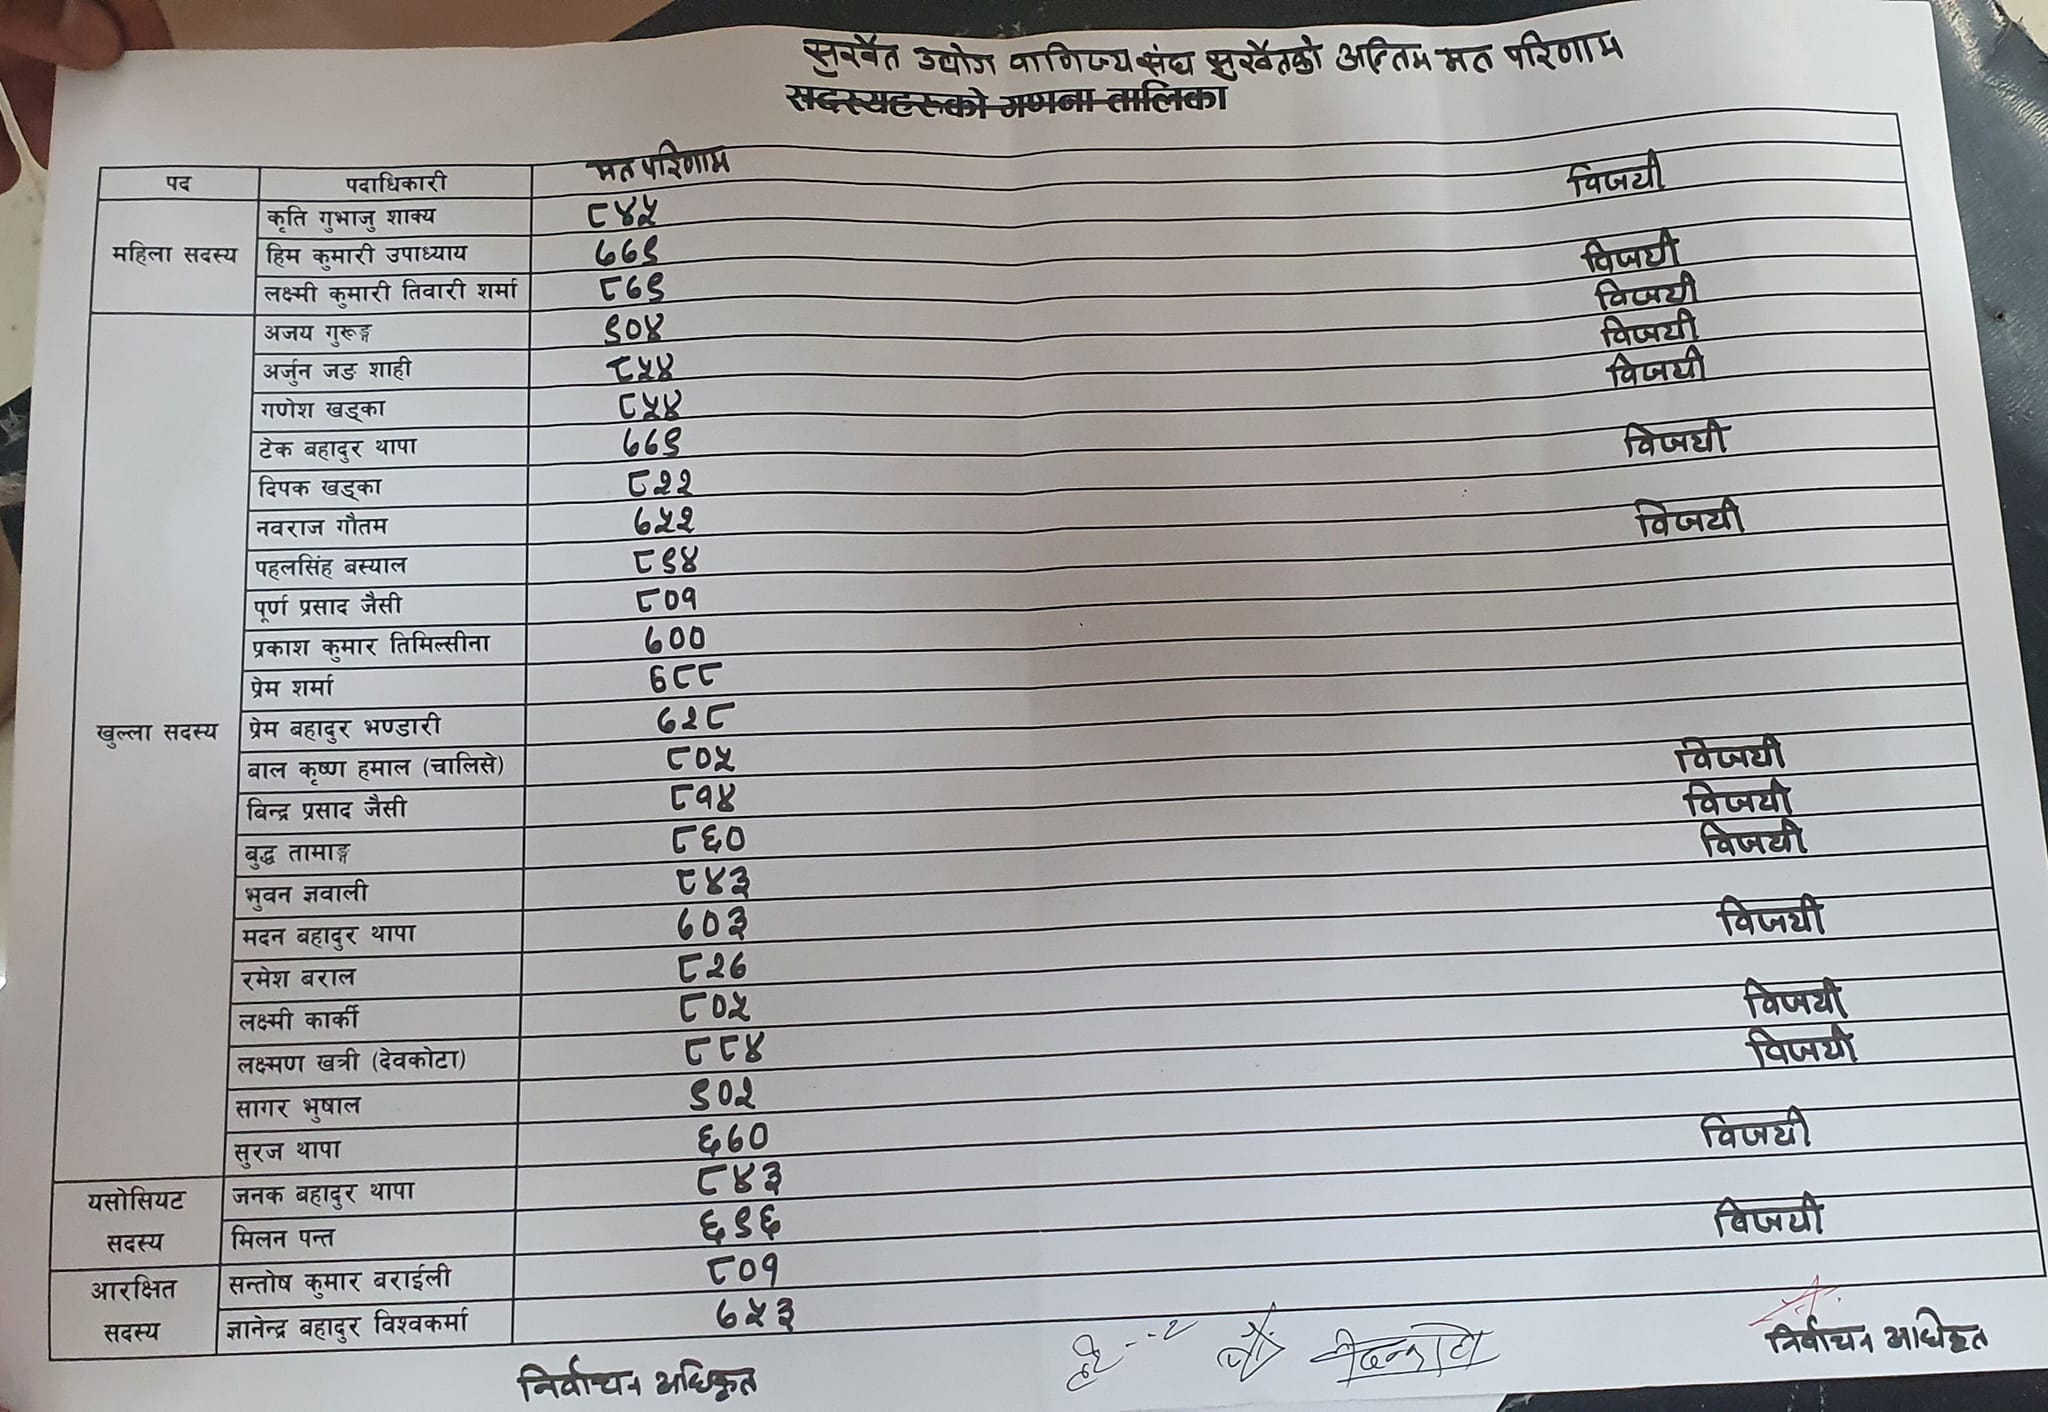 सुर्खेत उद्योग वाणिज्य संघ सुर्खेतको अन्तिम मत परिणाम
सदस्यहरुको गणना तालिका
पद पदाधिकारी मत परिणाम
महिला सदस्य
कृति गुभाजु शाक्य ८४५ विजयी
हिम कुमारी उपाध्याय ७७९
लक्ष्मी कुमारी तिवारी शर्मा ८७९ विजयी
खुल्ला सदस्य
अजय गुरूङ्ग ९०४ विजयी
अर्जुन जङ शाही ८५४ विजयी
गणेश खड्का ८५४ विजयी
टेक बहादुर थापा ७७९
दिपक खड्का ८२२ विजयी
नवराज गौतम ७५२
पहलसिंह बस्याल ८९४ विजयी
पूर्ण प्रसाद जैसी ८०१
प्रकाश कुमार तिमिल्सीना ७००
प्रेम शर्मा ६८८
प्रेम बहादुर भण्डारी ७२८
बाल कृष्ण हमाल (चालिसे) ८०५
बिन्द्र प्रसाद जैसी ८१४ विजयी
बुद्ध तामाङ्ग ८६० विजयी
भुवन ज्ञवाली ८४३ विजयी
मदन बहादुर थापा ७०३
रमेश बराल ८२७ विजयी
लक्ष्मी कार्की ८०५
लक्ष्मण खत्री (देवकोटा) ८८४ विजयी
सागर भुषाल ९०२ विजयी
सुरज थापा ६७०
यसोसियट सदस्य
जनक बहादुर थापा ८४३ विजयी
मिलन पन्त ६९६
आरक्षित सदस्य
सन्तोष कुमार बराईली ८०१ विजयी
ज्ञानेन्द्र बहादुर विश्वकर्मा ७५३
निर्वाचन अधिकृत
निर्वाचन अधिकृत